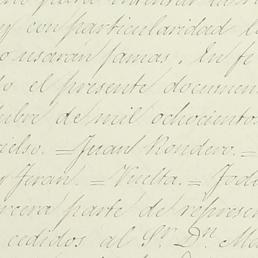 y con particularidad l
o usarán jamas. En fe
lo el presente documen
ubre de mil ochocientos
uelso. = Juan Rondero. =
r Feran. = Vuelta. = Todo
rcera parte de represen
cedidos al Sr. Dn. Ma